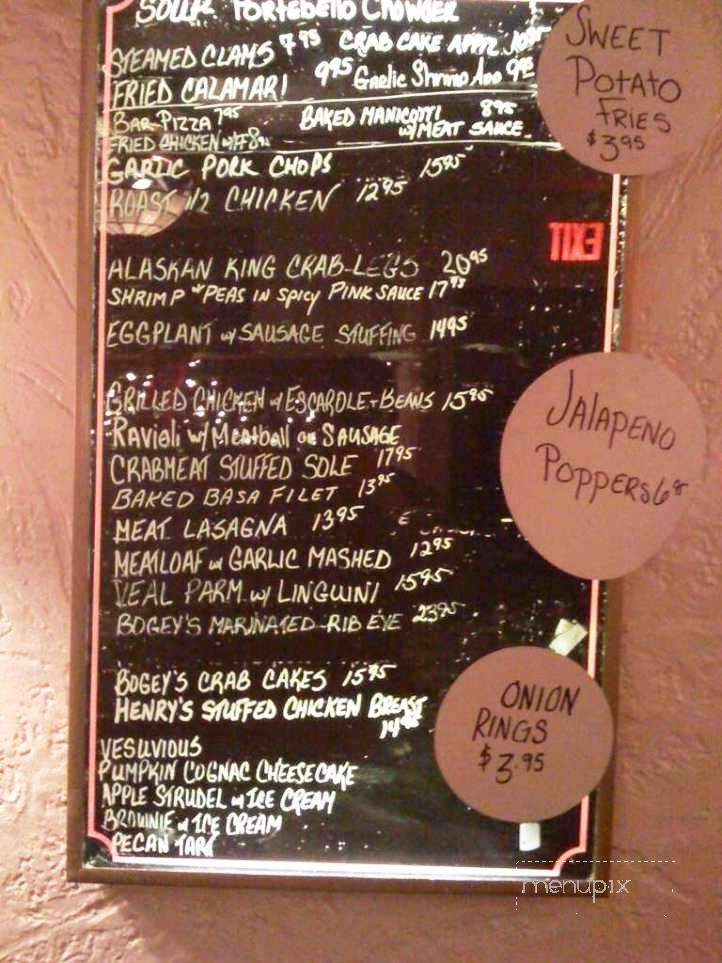 SOUP PORTEBELLO CHOWDER
STEAMED CLAMS 7.95 CRAB CAKE APPTZ 10.95
FRIED CALAMARI 9.95 Garlic Shrimp App 9.95
BAR PIZZA 7.95 BAKED MANICOTTI 8.95
W/MEAT SAUCE
FRIED CHICKEN w/FF 8.95
GARLIC PORK CHOPS 15.95
ROAST 1/2 CHICKEN 12.95
EXIT
ALASKAN KING CRAB LEGS 20.95
SHRIMP + PEAS IN SPICY PINK SAUCE 17.95
EGGPLANT w/ SAUSAGE STUFFING 14.95
GRILLED CHICKEN w/ ESCAROLE + BEANS 15.95
RAVIOLI W/ MEATBALL OR SAUSAGE
CRABMEAT STUFFED SOLE 17.95
BAKED BASA FILET 13.95
MEAT LASAGNA 13.95
MEATLOAF w/ GARLIC MASHED 12.95
VEAL PARM w/ LINGUINI 15.95
BOGEY'S MARINATED RIB EYE 23.95
BOGEY'S CRAB CAKES 15.95
HENRY'S STUFFED CHICKEN BREAST
14.95
VESUVIOUS
PUMPKIN COGNAC CHEESECAKE
APPLE STRUDEL w/ ICE CREAM
BROWNIE w/ ICE CREAM
PECAN TART
SWEET
POTATO
FRIES
$3.95
JALAPENO
POPPERS
ONION
RINGS
$3.95
menupix